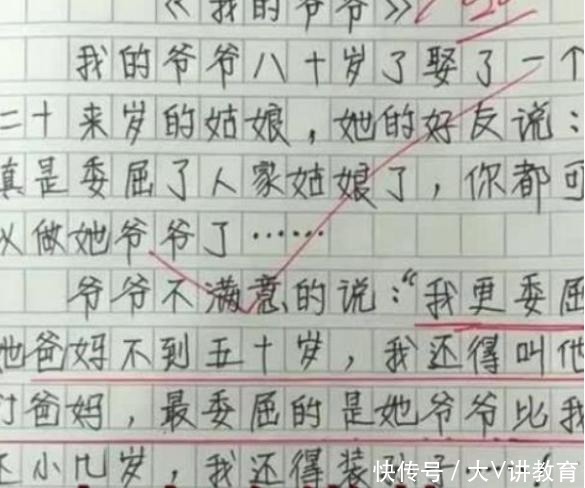 《我的爷爷》
我的爷爷八十岁了娶了一个
二十来岁的姑娘，她的好友说：
真是委屈了人家姑娘了，你都可
以做她爷爷了……
爷爷不满意的说：“我更委屈
她爸妈不到五十岁，我还得叫他
们爸妈，最委屈的是她爷爷比我
还小几岁，我还得装孙子
快传号／大V讲教育